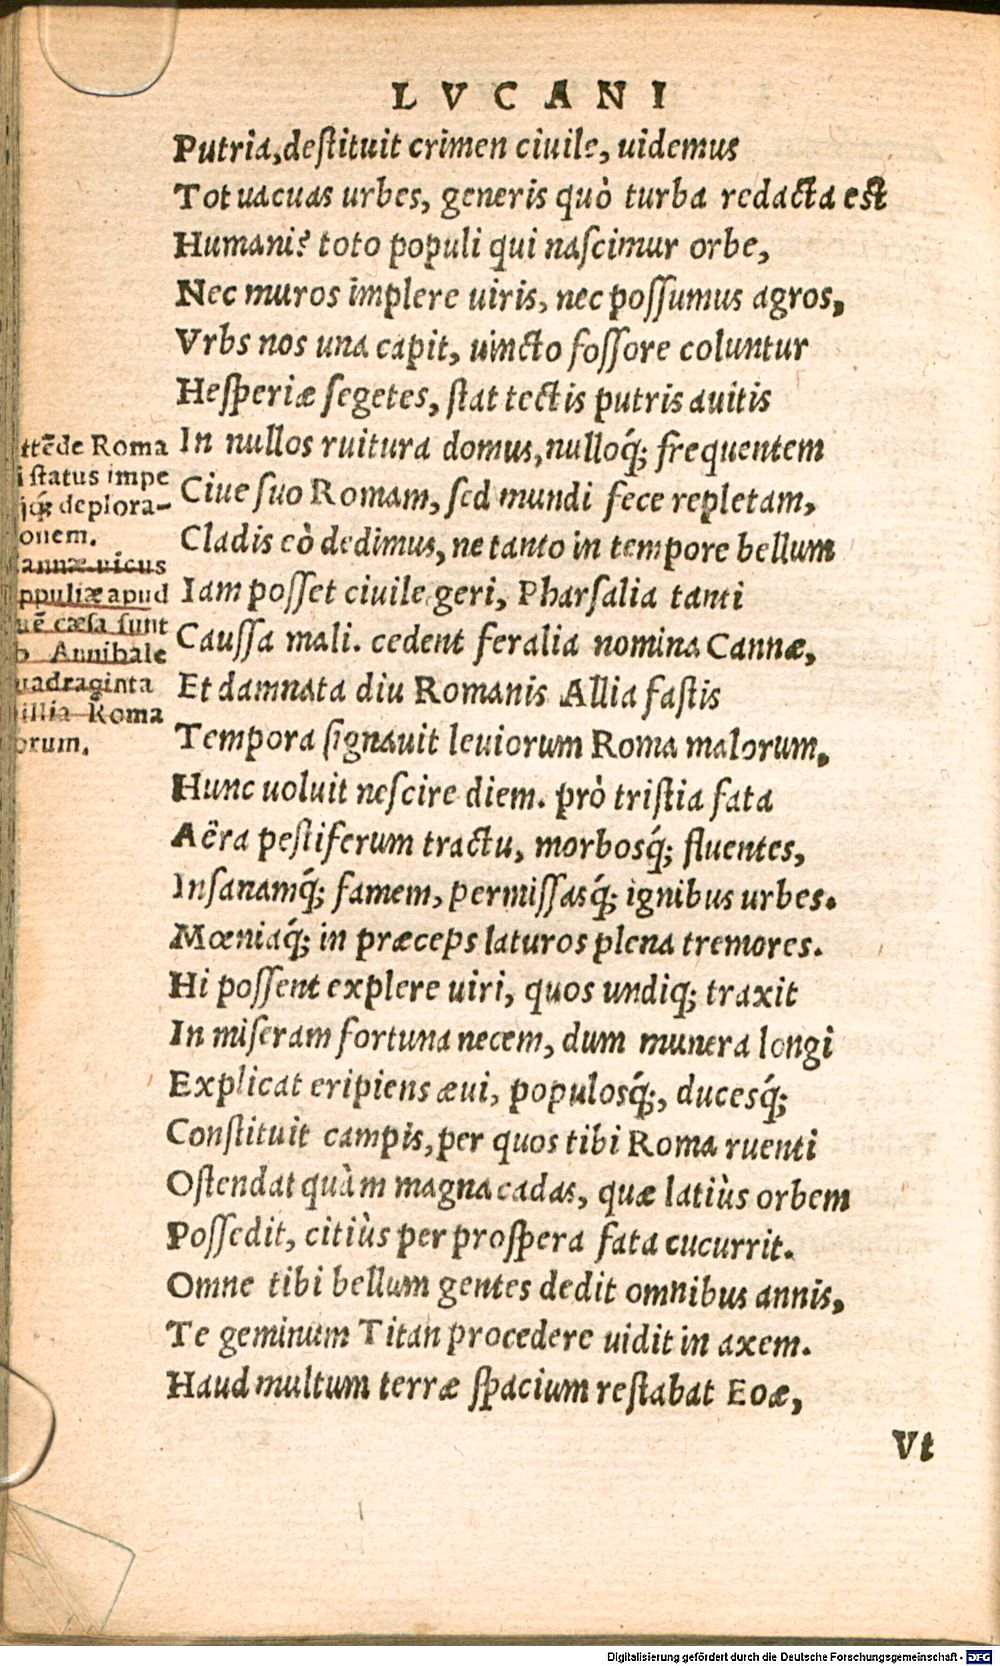 LVCANI
Putria, destituit crimen ciuile, uidemus
Tot uacuas urbes, generis quò turba redacta est
Humani? toto populi qui nascimur orbe,
Nec muros implere uiris, nec possumus agros,
Vrbs nos una capit, uincto fossore coluntur
Hesperiæ segetes, stat tectis putris auitis
In nullos ruitura domus, nulloq́; frequentem
Ciue suo Romam, sed mundi fece repletam,
Cladis eò dedimus, ne tanto in tempore bellum
Iam posset ciuile geri, Pharsalia tanti
Caussa mali. cedent feralia nomina Cannæ,
Et damnata diu Romanis Allia fastis
Tempora signauit leuiorum Roma malorum,
Hunc uoluit nescire diem. prò tristia fata
Aëra pestiferum tractu, morbosq́; fluentes,
Insanamq́; famem, permissasq́; ignibus urbes.
Mœniaq́; in præceps laturos plena tremores.
Hi possent explere uiri, quos undiq; traxit
In miseram fortuna necem, dum munera longi
Explicat eripiens æui, populosq́;, ducesq́;
Constituit campis, per quos tibi Roma ruenti
Ostendat quàm magna cadas, quæ latiùs orbem
Possedit, citiùs per prospera fata cucurrit.
Omne tibi bellum gentes dedit omnibus annis,
Te geminum Titan procedere uidit in axem.
Haud multum terræ spacium restabat Eoæ,
Vt
ttẽde Roma
i status impe
jq́; deplora-
onem.
annæ uicus
ppuliæ apud
uẽ cæsa sunt
b Annibale
uadraginta
illia Roma
orum.
Digitalisierung gefördert durch die Deutsche Forschungsgemeinschaft - DFG